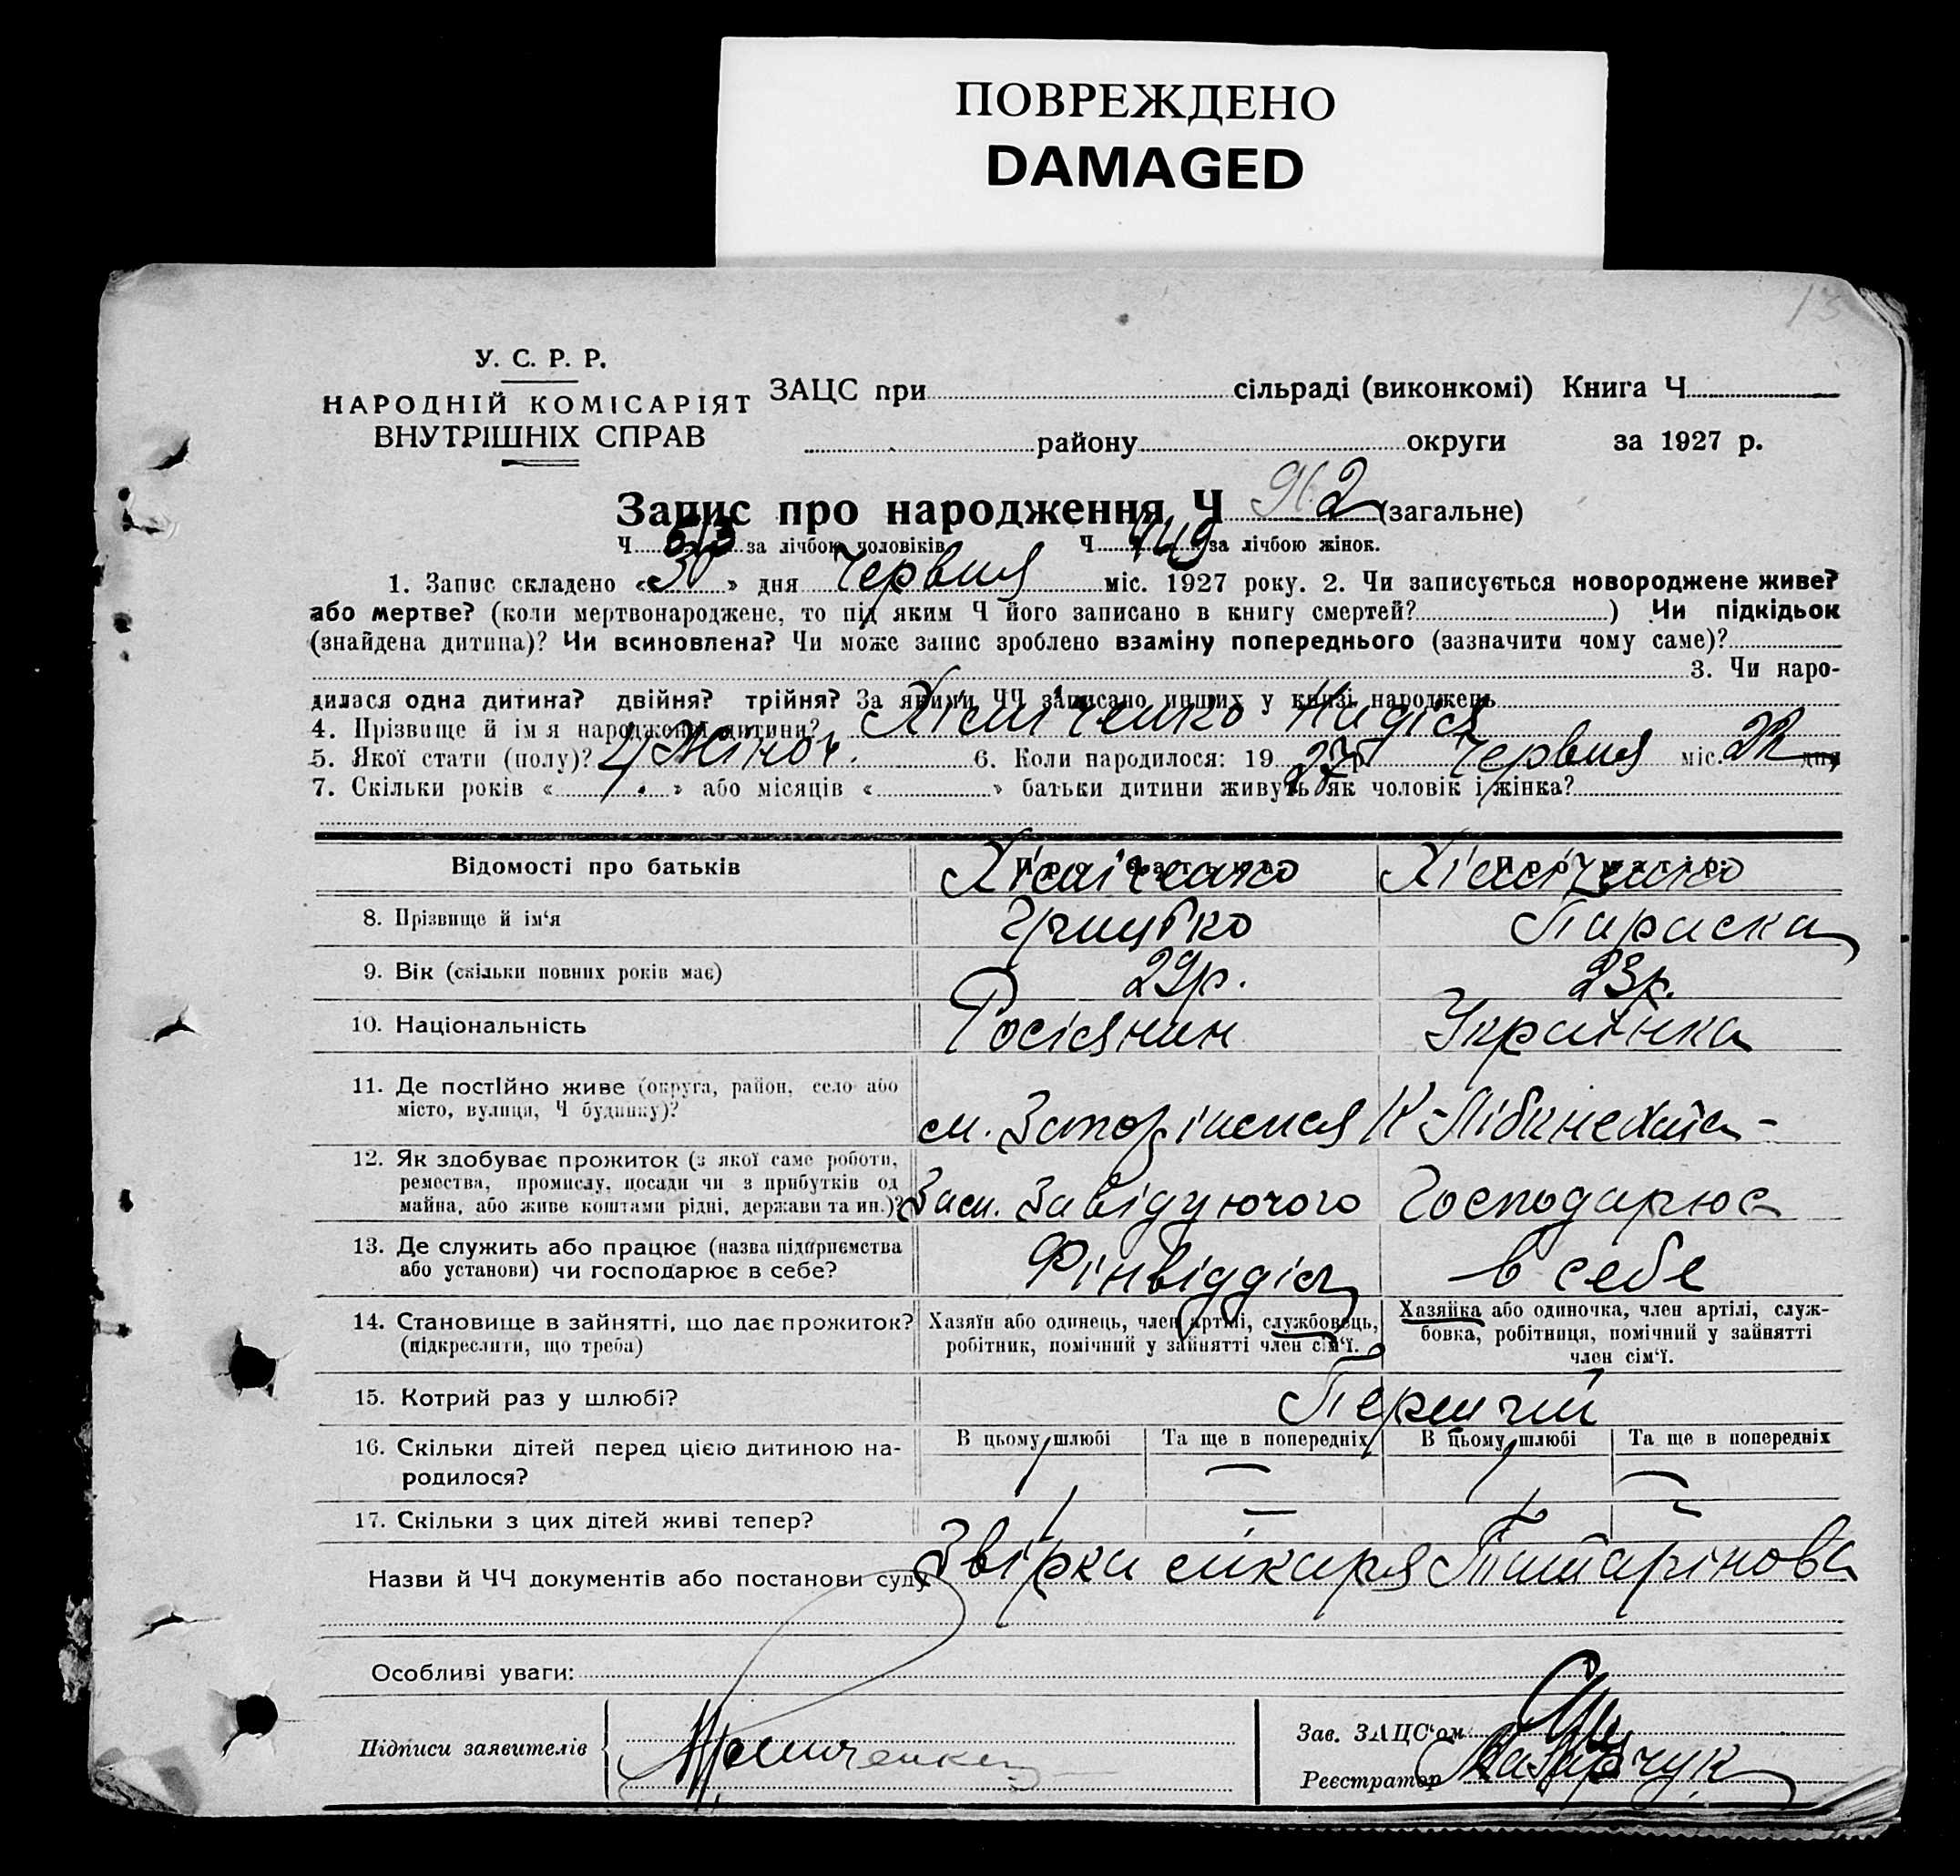 ПОВРЕЖДЕНО
DAMAGED
У. С. Р. Р.
НАРОДНІЙ КОМІСАРІЯТ
ВНУТРІШНІХ СПРАВ
ЗАЦС при сільраді (виконкомі) Книга Ч
району округи за 1927 р.
Запис про народження Ч 2 (загальне)
Ч 513 за лічбою чоловіків Ч 449 за лічбою жінок.
1. Запис складено «30» дня Червня міс. 1927 року. 2. Чи записується новороджене живе?
або мертве? (коли мертвонароджене, то під яким Ч його записано в книгу смертей? ) Чи підкідьок
(знайдена дитина)? Чи всиновлена? Чи може запис зроблено взаміну попереднього (зазначити чому саме)?
3. Чи наро-
дилася одна дитина? двійня? трійня? За якими ЧЧ записано инших у книзі народжень
4. Прізвище й ім я народженої дитини? Хімiченко Надія
5. Якої стати (полу)? Жіноч. 6. Коли народилося: 19 27 р. Червня міс. 22 дня
7. Скільки років « » або місяців « » батьки дитини живуть як чоловік і жінка?
Відомості про батьків Хімiченко Хімiченко
8. Прізвище й ім‘я Грицько Параска
9. Вік (скільки повних років має) 29р. 23р.
10. Національність Росіянин Українка
11. Де постійно живе (округа, район, село або
місто, вулиця, Ч будинку)?
м. Запоріжжя К-Лібкнехта-
12. Як здобуває прожиток (з якої саме роботи,
ремества, промислу, посади чи з прибутків од
майна, або живе коштами рідні, держави та ин.)? Зам. Завідуючого Господарює
13. Де служить або працює (назва підприємства
або установи) чи господарює в себе? Фінвідділ в себе
14. Становище в зайнятті, що дає прожиток?
(підкреслити, що треба)
Хазяїн або одинець, член артілі, службовець,
робітник, помічний у зайнятті член сім‘ї.
Хазяйка або одиночка, член артілі, служ-
бовка, робітниця, помічний у зайнятті
член сім‘ї.
15. Котрий раз у шлюбі? Перший
16. Скільки дітей перед цією дитиною на-
родилося?
В цьому шлюбі Та ще в попередніх В цьому шлюбі Та ще в попередніх
1 — 1 —
17. Скільки з цих дітей живі тепер? 1 — 1 —
Назви й ЧЧ документів або постанови суду Звірка лікаря
Особливі уваги:
Підписи заявителів
Зав. ЗАЦС‘ом
Реєстратор